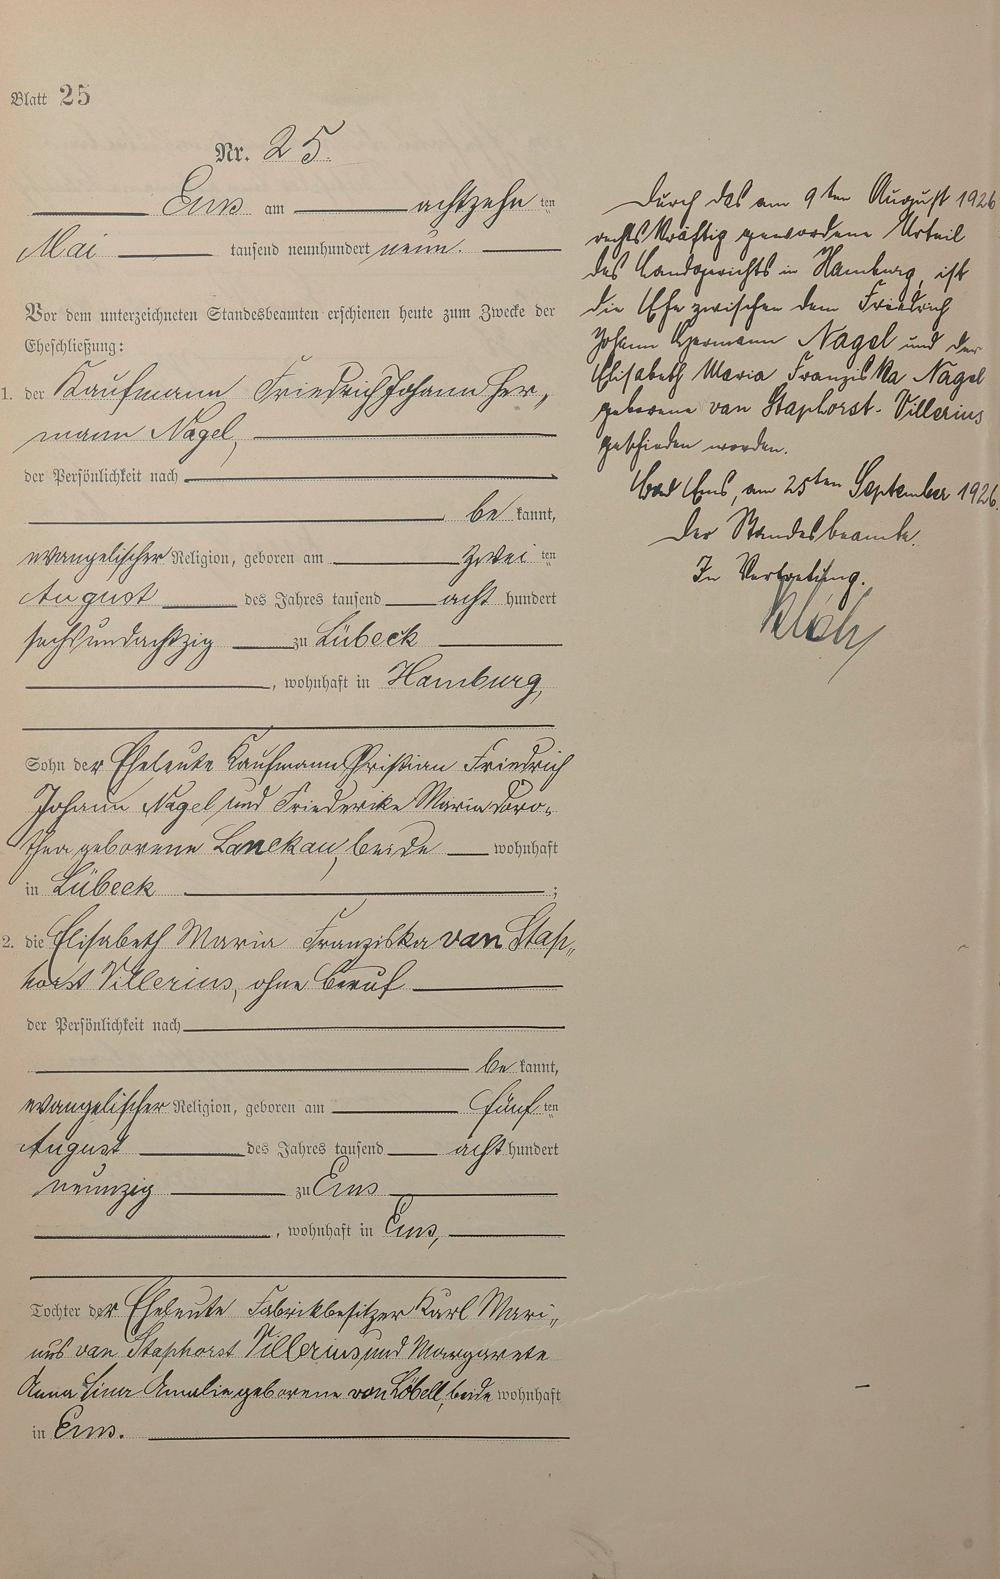 Blatt 25
Nr. 25.
Ems am achtzehnten
Mai tausend neunhundert neun.
Vor dem unterzeichneten Standesbeamten erschienen heute zum Zwecke der
Eheschließung:
1. der Kaufmann Friedrich Johann Her,
mann Nagel,
der Persönlichkeit nach
be kannt,
evangelischer Religion, geboren am zwei ten
August des Jahres tausend acht hundert
sechsundachtzig zu Lübeck
, wohnhaft in Hamburg,
Sohn der Eheleute Kaufmann Christian Friedrich
Johann Nagel und Friederike Maria Doro-
thea geborene Lanckau, beide wohnhaft
in Lübeck ;
2. die Elisabeth Maria Franziska van Stap,,
horst Villerius, ohne Beruf
der Persönlichkeit nach
be kannt,
evangelischer Religion, geboren am fünf ten
August des Jahres tausend acht hundert
neunzig zu Ems
, wohnhaft in Ems,
Tochter der Eheleute Fabrikbesitzer Karl Mari,,
nus van Staphorst Villerius und Margarete
Anna Lina Amalie geborene von Löbell, beide wohnhaft
in Ems.
Durch das am 9ten August 1926
rechtskräftig gewordene Urteil
des Landgerichts in Hamburg, ist
die Ehe zwischen dem Friedrich
Johann Hermann Nagel und der
Elisabeth Maria Franziska Nagel
geborene van Staphorst-Villerius
geschieden worden.
Bad Ems, am 25ten September 1926.
Der Standesbeamte.
In Vertretung.